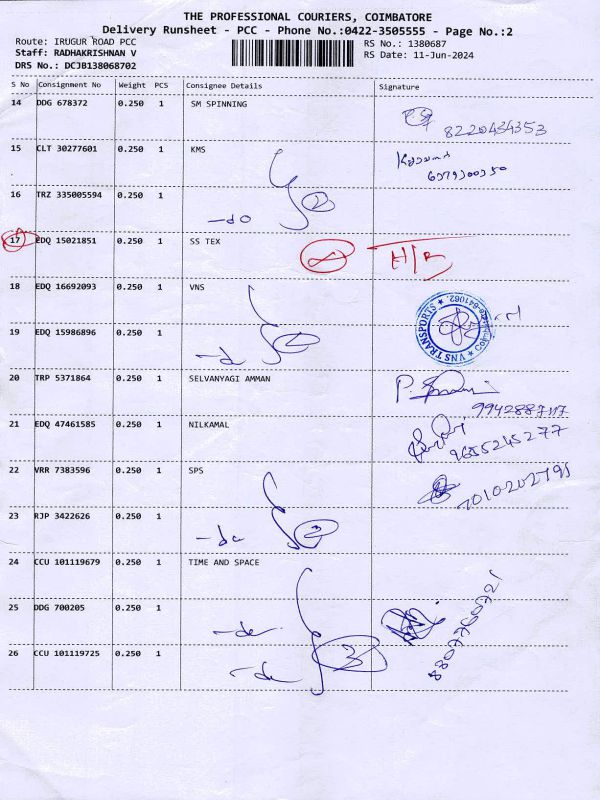 THE PROFESSIONAL COURIERS, COIMBATORE
Delivery Runsheet - PCC - Phone No.:0422-3505555 - Page No.:2
Route: IRUGUR ROAD PCC
RS No.: 1380687
Staff: RADHAKRISHNAN V
RS Date: 11-Jun-2024
DRS No.: DCJB138068702
S No Consignment No Weight PCS Consignee Details Signature
14 DDG 678372 0.250 1 SM SPINNING
8220434353
15 CLT 30277601 0.250 1 KMS
6379300350
16 TRZ 335005594 0.250 1 -do 2
17 EDQ 15021851 0.250 1 SS TEX H/R
18 EDQ 16692093 0.250 1 VNS
VNS TRANSPORTS
19 EDQ 15986896 0.250 1 -do 2
20 TRP 5371864 0.250 1 SELVANYAGI AMMAN
9942887117
21 EDQ 47461585 0.250 1 NILKAMAL
9655245277
22 VRR 7383596 0.250 1 SPS
7010202795
23 RJP 3422626 0.250 1 -do 2
24 CCU 101119679 0.250 1 TIME AND SPACE
25 DDG 700205 0.250 1 -do
26 CCU 101119725 0.250 1 -do 3